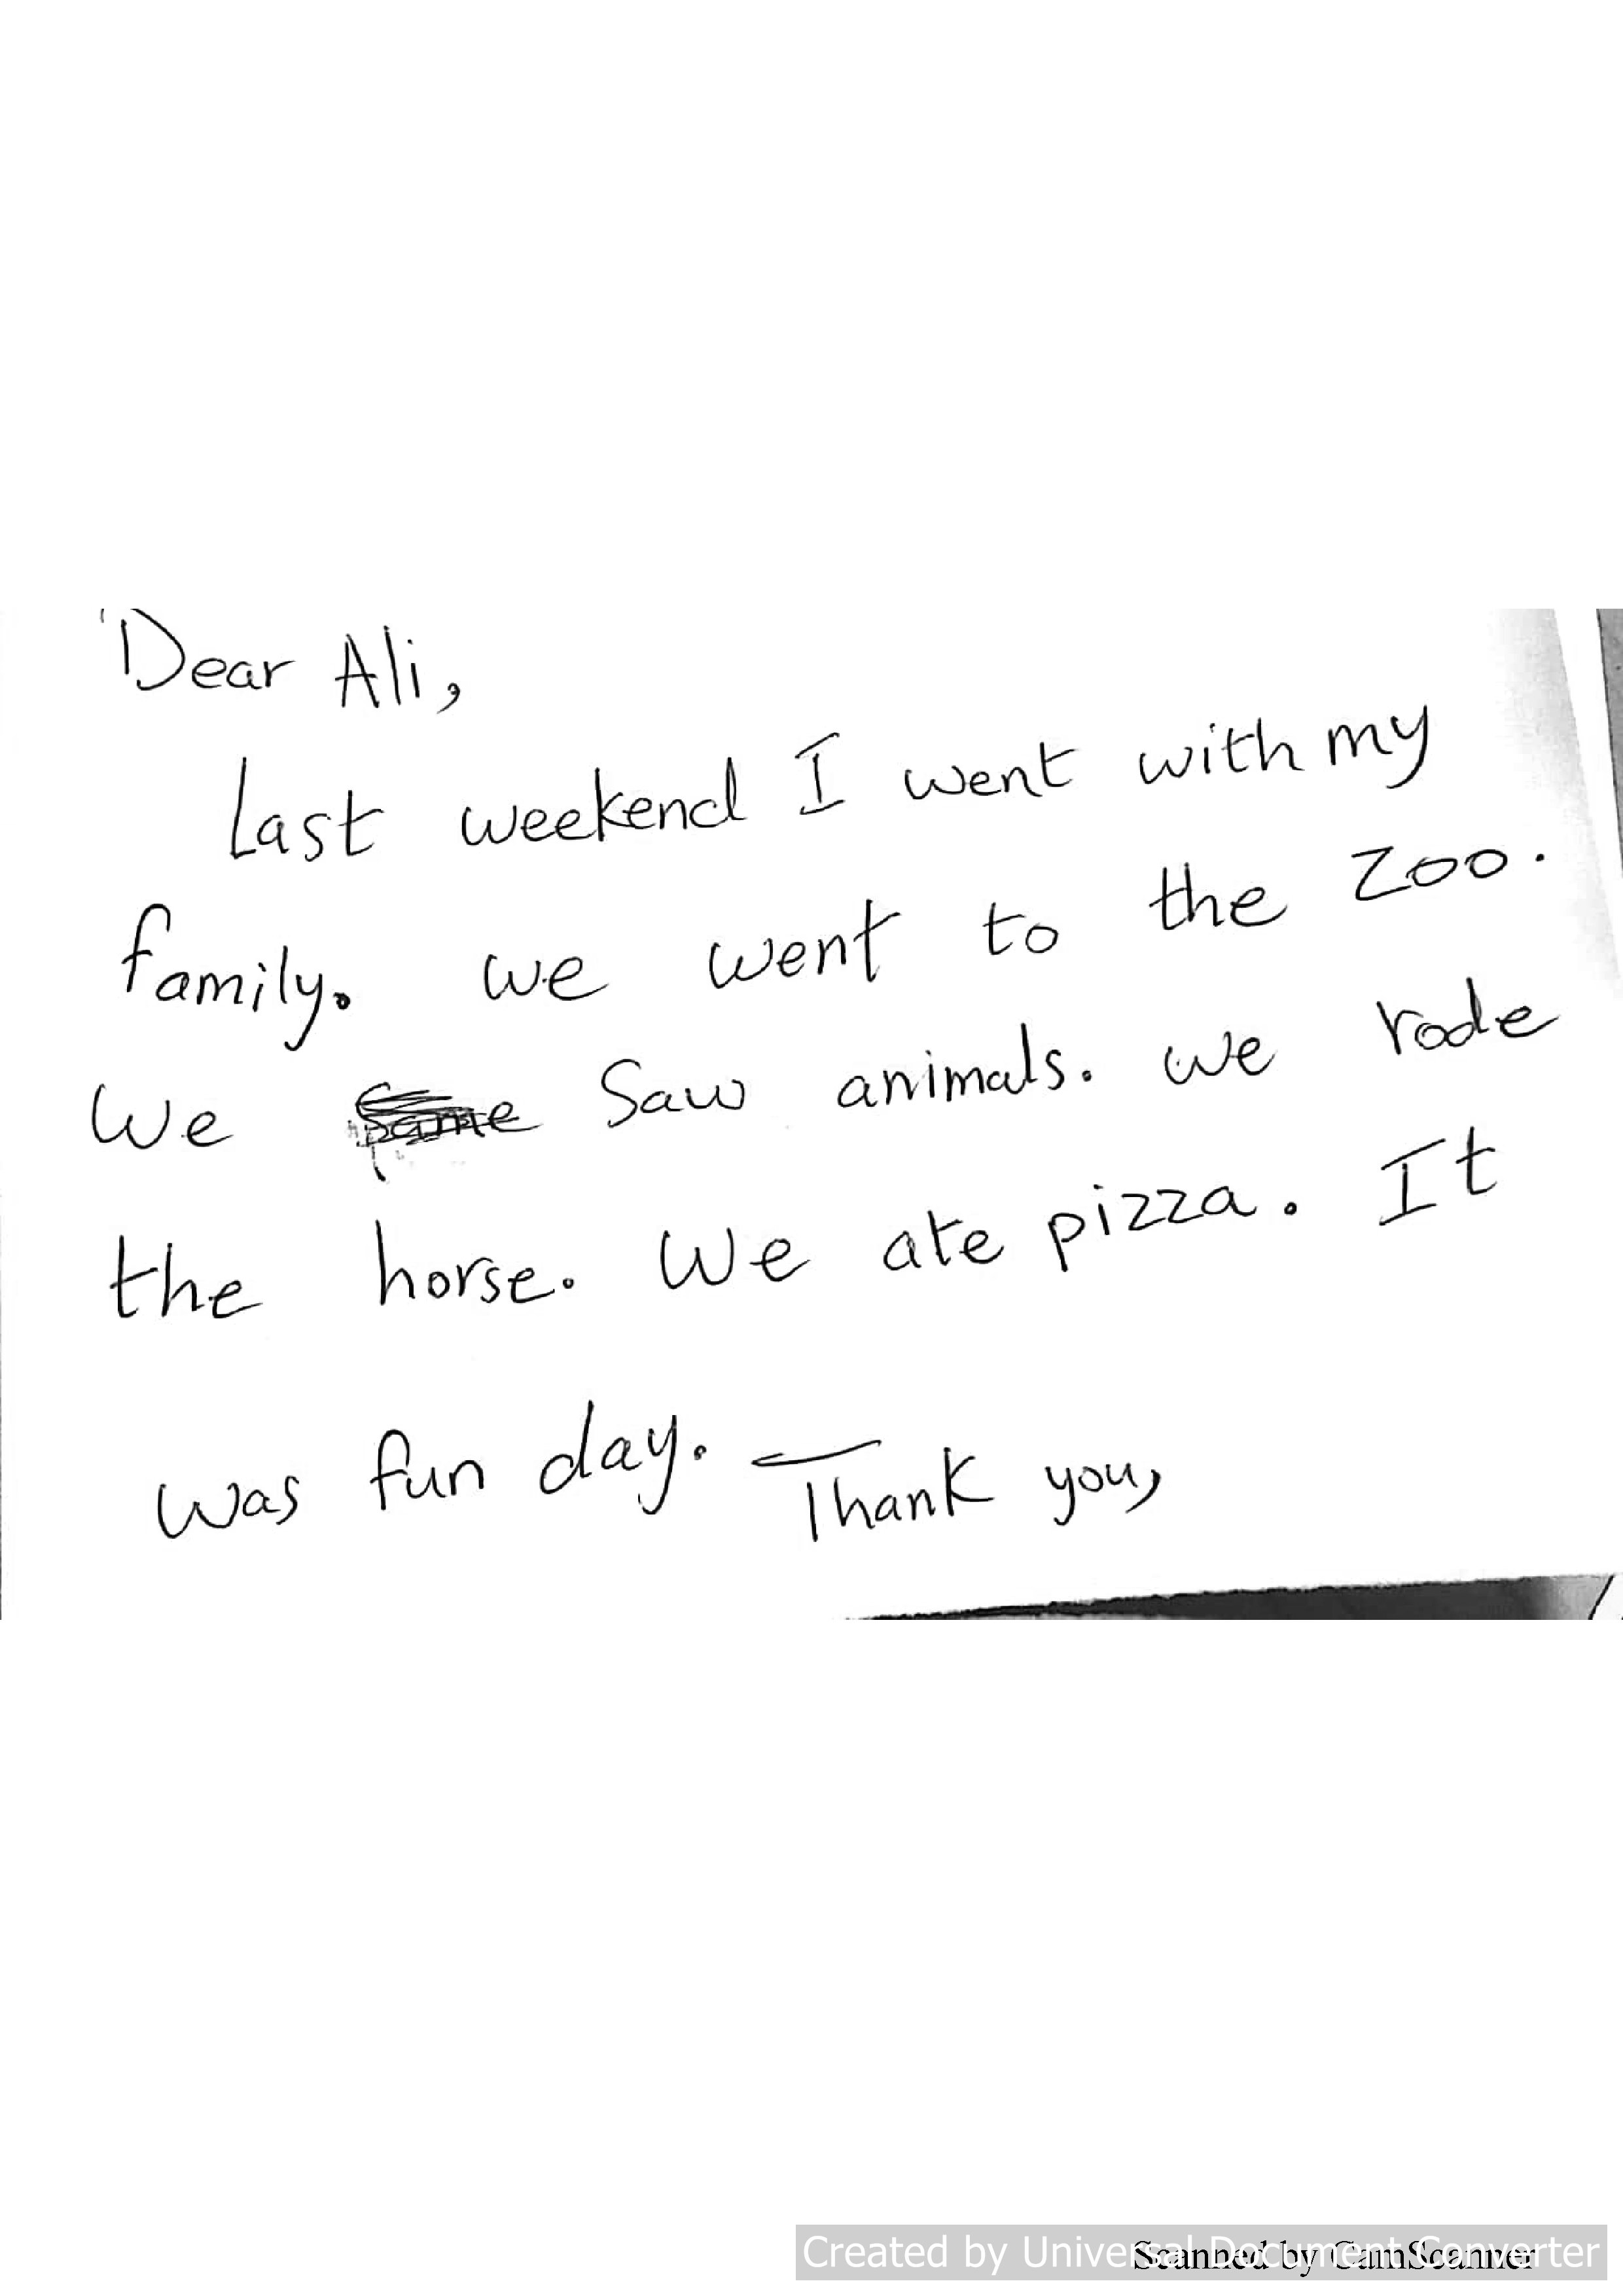 Dear Ali,
Last weekend I went with my
family. we went to the zoo.
We saw animals. we rode
the horse. We ate pizza. It
was fun day. Thank you,
Created by Universal Document Converter
Scanned by CamScanner